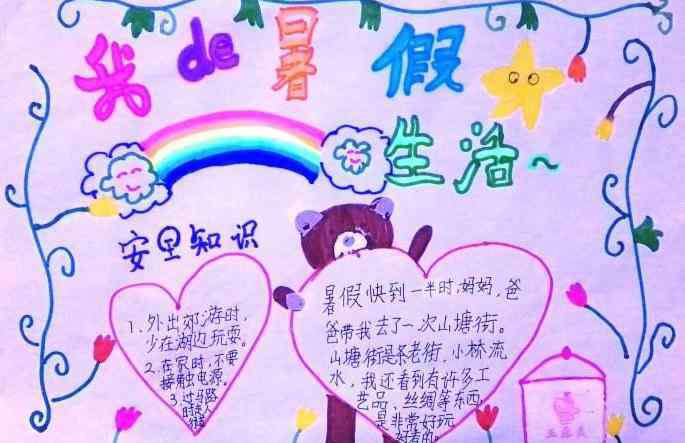 我de暑假
生活~
安里知识
1、外出郊游时,
少在湖边玩耍。
2、在家时,不要
接触电源。
3、过马路
暑假快到一半时,妈妈,爸
爸带我去了一次山塘街。
山塘街是条老街,小林流
水,我还看到有许多工
艺品、丝绸等东西,
是非常好玩
好看的。